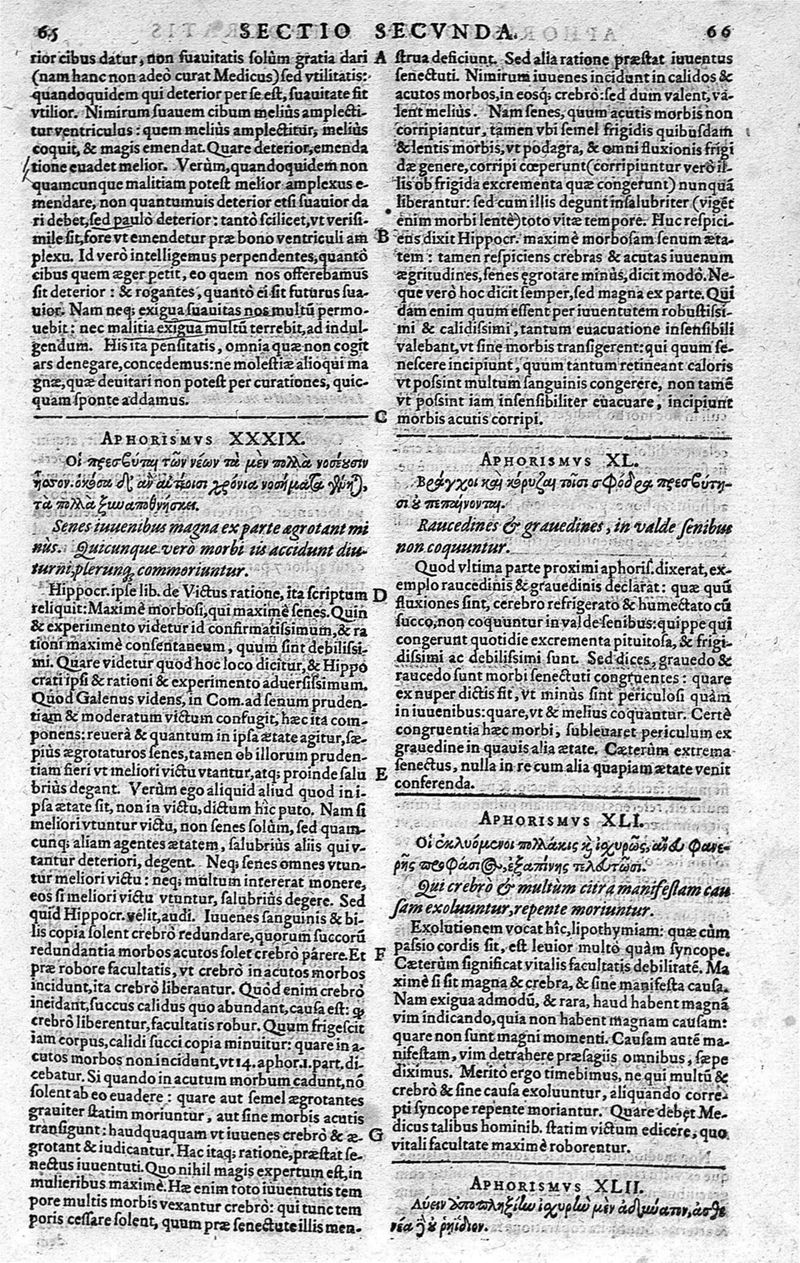 65
SECTIO SECVNDA.
66
rior cibus datur, non suauitatis solùm gratia dari
(nam hanc non adeò curat Medicus) sed vtilitatis:
quandoquidem qui deterior per se est, suauitate fit
vtilior. Nimirum suauem cibum melius amplecti-
tur ventriculus: quem melius amplectitur, melius
coquit, & magis emendat. Quare deterior, emenda
tione euadet melior. Verùm, quandoquidem non
quamcunque malitiam potest melior amplexus e-
mendare, non quantumuis deterior etsi suauior da
ri debet, sed paulò deterior: tantò scilicet, vt verisi-
mile sit, fore vt emendetur præ bono ventriculi am
plexu. Id verò intelligemus perpendentes, quantò
cibus quem æger petit, eo quem nos offerebamus
sit deterior: & rogantes, quantò ei sit futurus sua-
uior. Nam neq; exigua suauitas nos multũ permo-
uebit: nec malitia exigua multũ terrebit, ad indul-
gendum. His ita pensitatis, omnia quæ non cogit
ars denegare, concedemus: ne molestiæ alioqui ma
gnæ, quæ deuitari non potest per curationes, quic-
quam sponte addamus.
APHORISMVS XXXIX.
Οἱ πρεσβῦται τῶν νέων τὰ μὲν πολλὰ νοσέουσιν
ἧσσον. ὁκόσα δ' ἂν αὐτέοισι χρόνια νοσήματα γένηται,
τὰ πολλὰ ξυναποθνήσκει.
Senes iuuenibus magna ex parte ægrotant mi
nùs. Quicunque verò morbi iis accidunt diu-
turni, plerunq; commoriuntur.
Hippocr. ipse lib. de Victus ratione, ita scriptum
reliquit: Maximè morbosi, qui maximè senes. Quin
& experimento videtur id confirmatissimum, & ra
tioni maximè consentaneum, quum sint debilissi-
mi. Quare videtur quod hoc loco dicitur, & Hippo
crati ipsi & rationi & experimento aduersissimum.
Quod Galenus videns, in Com. ad senum pruden-
tiam & moderatum victum confugit, hæc ita com-
ponens: reuerà & quantum in ipsa ætate agitur, sæ-
pius ægrotaturos senes, tamen ob illorum pruden-
tiam fieri vt meliori victu vtantur, atq; proinde salu
brius degant. Verùm ego aliquid aliud quod in i-
psa ætate sit, non in victu, dictum hîc puto. Nam si
meliori vtuntur victu, non senes solùm, sed quam-
cunq; aliam agentes ætatem, salubrius aliis qui v-
tantur deteriori, degent. Neq; senes omnes vtun-
tur meliori victu: neq; multum intererat monere,
eos si meliori victu vtuntur, salubrius degere. Sed
quid Hippocr. velit, audi. Iuuenes sanguinis & bi-
lis copia solent crebrò redundare, quorum succorũ
redundantia morbos acutos solet crebrò parere. Et
præ robore facultatis, vt crebrò in acutos morbos
incidunt, ita crebrò liberantur. Quòd enim crebrò
incidant, succus calidus quo abundant, causa est: ꝙ
crebrò liberentur, facultatis robur. Quum frigescit
iam corpus, calidi succi copia minuitur: quare in a-
cutos morbos non incidunt, vt 14. aphor. 1. part. di-
cebatur. Si quando in acutum morbum cadunt, nõ
solent ab eo euadere: quare aut semel ægrotantes
grauiter statim moriuntur, aut sine morbis acutis
transigunt: haudquaquam vt iuuenes crebrò & æ-
grotant & iudicantur. Hac itaq; ratione, præstat se-
nectus iuuentuti. Quo nihil magis expertum est, in
mulieribus maximè. Hæ enim toto iuuentutis tem
pore multis morbis vexantur crebrò: qui tunc tem
poris cessare solent, quum præ senectute illis men-
A
B
C
D
E
F
G
strua deficiunt. Sed alia ratione præstat iuuentus
senectuti. Nimirum iuuenes incidunt in calidos &
acutos morbos, in eosq; crebrò: sed dum valent, va-
lent melius. Nam senes, quum acutis morbis non
corripiantur, tamen vbi semel frigidis quibusdam
& lentis morbis, vt podagra, & omni fluxionis frigi
dæ genere, corripi cœperunt (corripiuntur verò il-
lis ob frigida excrementa quæ congerunt) nunquã
liberantur: sed cum illis degunt insalubriter (vigẽt
enim morbi lentè) toto vitæ tempore. Huc respici-
ens dixit Hippocr. maximè morbosam senum æta-
tem: tamen respiciens crebras & acutas iuuenum
ægritudines, senes ęgrotare minùs, dicit modò. Ne-
que verò hoc dicit semper, sed magna ex parte. Qui
dam enim quum essent per iuuentutem robustissi-
mi & calidissimi, tantum euacuatione insensibili
valebant, vt sine morbis transigerent: qui quum se-
nescere incipiunt, quum tantum retineant caloris
vt possint multum sanguinis congerere, non tamẽ
vt possint iam insensibiliter euacuare, incipiunt
morbis acutis corripi.
APHORISMVS XL.
Βράγχοι καὶ κόρυζαι τοῖσι σφόδρα πρεσβύτη-
σι οὐ πεπαίνονται.
Raucedines & grauedines, in valde senibus
non coquuntur.
Quod vltima parte proximi aphoris. dixerat, ex-
emplo raucedinis & grauedinis declarat: quæ quũ
fluxiones sint, cerebro refrigerato & humectato cũ
succo, non coquuntur in valde senibus: quippe qui
congerunt quotidie excrementa pituitosa, & frigi-
dissimi ac debilissimi sunt. Sed dices, grauedo &
raucedo sunt morbi senectuti congruentes: quare
ex nuper dictis fit, vt minùs sint periculosi quàm
in iuuenibus: quare, vt & melius coquantur. Certè
congruentia hæc morbi, subleuaret periculum ex
grauedine in quauis alia ætate. Cæterùm extrema
senectus, nulla in re cum alia quapiam ætate venit
conferenda.
APHORISMVS XLI.
Οἱ ἐκλυόμενοι πολλάκις κ̀ ἰσχυρῶς, ἄνευ φανε-
ρῆς προφάσιος, ἐξαπίνης τελευτῶσι.
Qui crebrò & multum citra manifestam cau
sam exoluuntur, repente moriuntur.
Exolutionem vocat hîc, lipothymiam: quæ cùm
passio cordis sit, est leuior multò quàm syncope.
Cæterùm significat vitalis facultatis debilitatẽ. Ma
ximè si sit magna & crebra, & sine manifesta causa.
Nam exigua admodũ, & rara, haud habent magnã
vim indicando, quia non habent magnam causam:
quare non sunt magni momenti. Causam autẽ ma-
nifestam, vim detrahere præsagiis omnibus, sæpe
diximus. Meritò ergo timebimus, ne qui multũ &
crebrò & sine causa exoluuntur, aliquando corre-
pti syncope repente moriantur. Quare debet Me-
dicus talibus hominib. statim victum edicere, quo
vitali facultate maximè roborentur.
APHORISMVS XLII.
Λύειν ἀποπληξίην ἰσχυρὴν μὲν ἀδύνατον, ἀσθε
νέα δ' οὐ ῥηΐδιον.